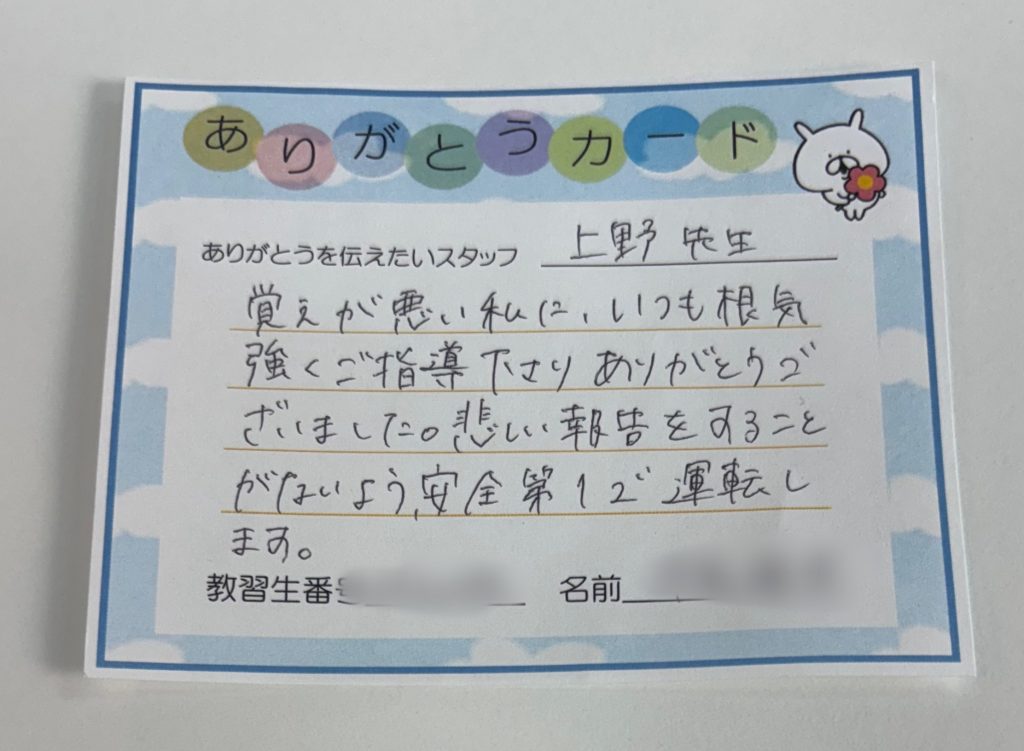 ありがとうカード
ありがとうを伝えたいスタッフ 上野先生
覚えが悪い私に、いつも根気
強くご指導下さりありがとうご
ざいました。悲しい報告をすること
がないよう、安全第1で運転し
ます。
教習生番号 名前